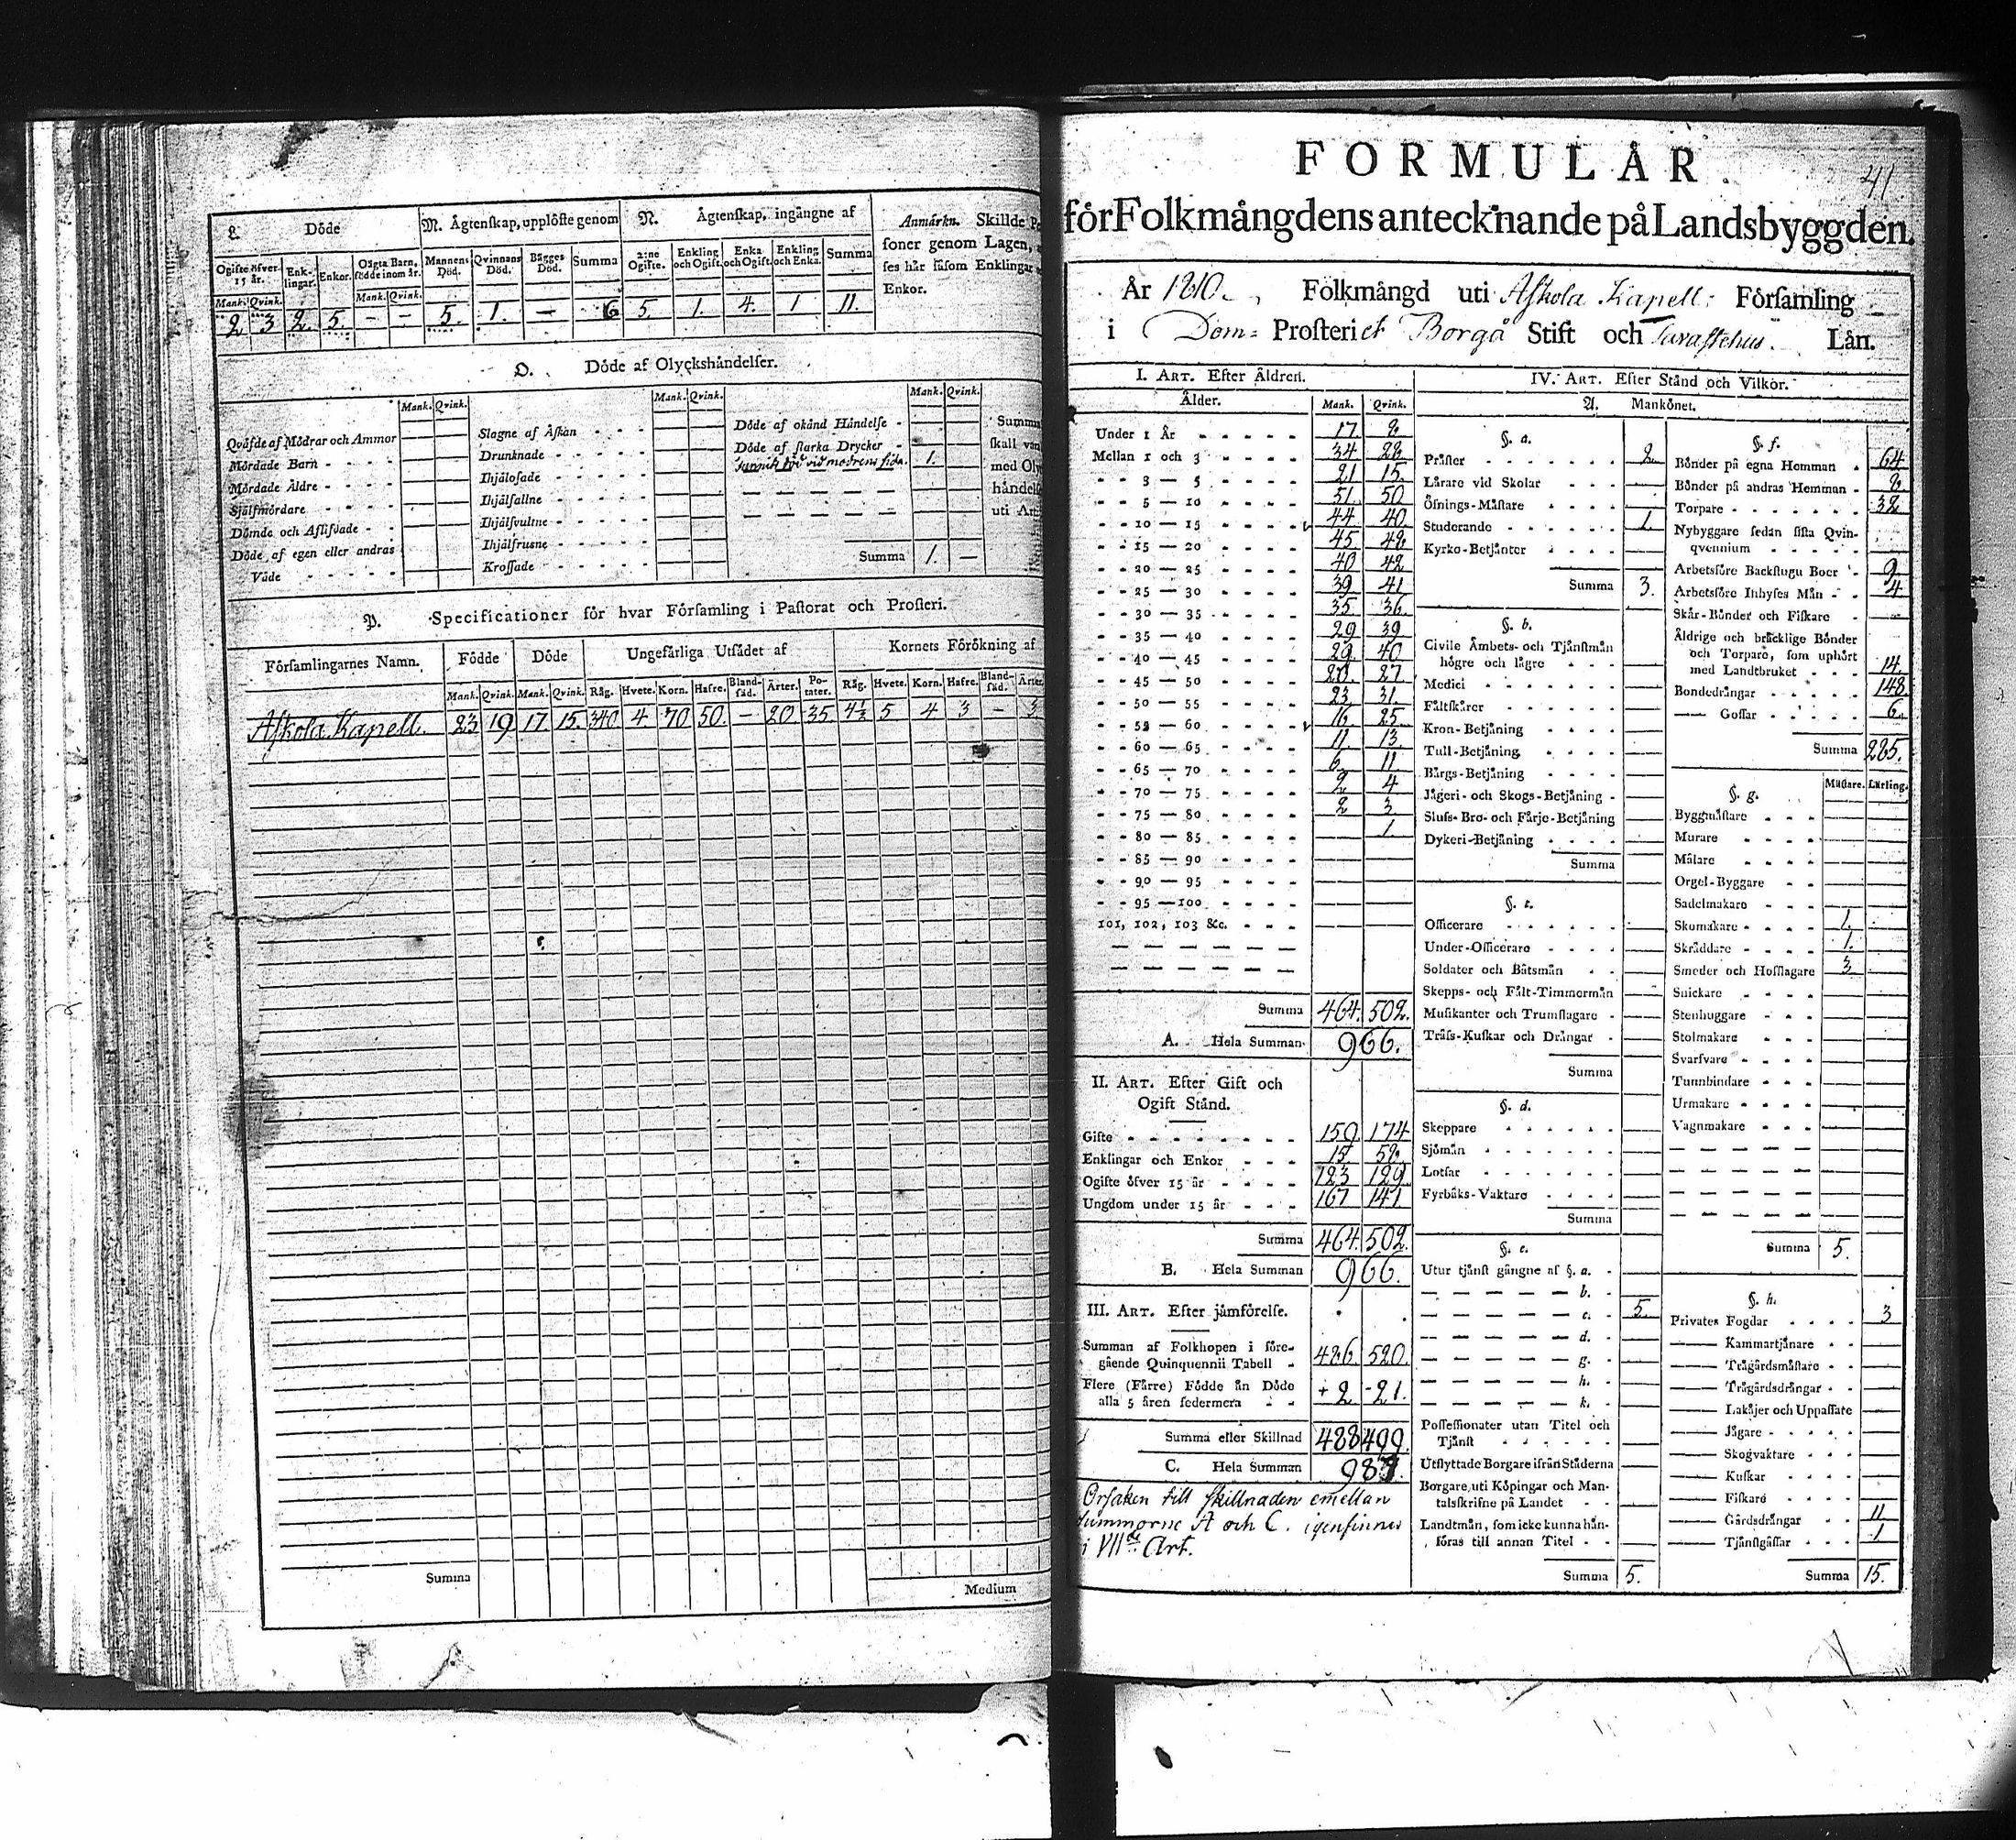 L. Döde
N. Ågtenſkap, upplöſte genom
N. Ågtenſkap, ingångne af
Anmårkn. Skillde Pe
ſoner genom Lagen,
ſes hår ſåſom Enklingar
Enkor.
Ogifte öfver 15 år. Enklingar. Enkor. Oågta Barn, födde inom år. Mannens Död. Qvinnans Död. Bågges Död. Summa 2:ne Ogifte. Enkling och Ogift. Enka och Ogift. Enkling och Enka. Summa
Mank. Qvink. Mank. Qvink.
2 3 2. 5. — — 5. 1. — 6 5. 1. 4. 1 11.
O. Döde af Olyckshåndelſer.
Mank. Qvink. Mank. Qvink. Mank. Qvink.
Qvåfde af Mödrar och Ammor
Mördade Barn
Mördade Åldre
Sjålfmördare
Dömde och Aflifvade
Döde af egen eller andras
Våde
Slagne af Åſkan
Drunknade
Ihjålofade
Ihjålfallne
Ihjålſvultne
Ihjålfruſne
Kroſſade
Döde af okånd Håndelſe
Döde af ſtarka Drycker
vid modrens ſida. 1.
Summa 1. —
Summa
ſkall var
med Oly
håndelſ
uti Art
P. Specificationer för hvar Förſamling i Paſtorat och Proſteri.
Förſamlingarnes Namn. Födde Döde Ungefårliga Utſådet af Kornets Förökning af
Mank. Qvink. Mank. Qvink. Råg. Hvete. Korn. Hafre. Blandſåd. Årter. Potater. Råg. Hvete. Korn. Hafre. Blandſåd. Årter.
Aſkola Kapell. 23 19 17. 15. 340 4 70 50. — 20 35 4½ 5 4 3 — 3
Summa
Medium
FORMULÅR
41.
för Folkmångdens antecknande på Landsbyggden.
År 1810. Folkmångd uti Aſkola Kapell: Förſamling
i Dom= Proſteriet Borgå Stift och Tavaſtehus. Lån.
I. ART. Efter Åldren.
Ålder. Mank. Qvink.
Under 1 År 17 8
Mellan 1 och 3 34 22
3 — 5 21 15.
5 — 10 51. 50
10 — 15 44 40.
15 — 20 45 42
20 — 25 40 42
25 — 30 39 41
30 — 35 35 36
35 — 40 29 39
40 — 45 29 40
45 — 50 27
50 — 55 23 31.
55 — 60 16 25
60 — 65 11. 13.
65 — 70 6. 11
70 — 75 2 4
75 — 80 2 3
80 — 85 1
85 — 90
90 — 95
95 — 100
101, 102, 103 &c.
Summa 464. 502.
A. Hela Summan 966.
II. ART. Efter Gift och
Ogift Stånd.
Gifte 159 174
Enklingar och Enkor 15 58
Ogifte öfver 15 år 123 129
Ungdom under 15 år 167 141.
Summa 464. 502.
B. Hela Summan 966.
III. ART. Efter jåmförelſe.
Summan af Folkhopen i föregående
Quinquennii Tabell 486. 520.
Flere (Fårre) Födde ån Döde
alla 5 åren ſedermera +2 -21.
Summa eller Skillnad 488 499.
C. Hela Summan 987.
Orſaken till ſkillnaden emellan
ſummorne A och C. igenfinnes
i VII:de Art.
IV. ART. Efter Stånd och Vilkor.
A. Mankönet.
§. a.
Pråſter 2
Lårare vid Skolar
Öfnings-Måſtare
Studerande 1.
Kyrko-Betjånter
Summa 3.
§. b.
Civile Åmbets- och Tjånſtmån
högre och lågre
Medici
Fåltſkårer
Kron-Betjåning
Tull-Betjåning
Bårgs-Betjåning
Jågeri- och Skogs-Betjåning
Sluſs- Bro- och Fårje-Betjåning
Dykeri-Betjåning
Summa
§. c.
Officerare
Under-Officerare
Soldater och Båtsmån
Skepps- och Fålt-Timmermån
Muſikanter och Trumſlagare
Tråſs-Kuſkar och Drångar
Summa
§. d.
Skeppare
Sjömån
Lotſar
Fyrbåks-Vaktare
Summa
§. e.
Utur tjånſt gångne af §. a.
b.
c. 5.
d.
g.
h.
k.
Poſſeſſionater utan Titel och
Tjånſt
Utflyttade Borgare ifrån Ståderna
Borgare uti Köpingar och Mantalsſkrifne
på Landet
Landtmån, ſom icke kunna hånföras
till annan Titel
Summa 5.
§. f.
Bönder på egna Hemman 64
Bönder på andras Hemman 8.
Torpare 32
Nybyggare ſedan ſiſta Qvinqvennium
Arbetsföre Backſtugu Boer 9
Arbetsföre Inhyſes Mån 4
Skår-Bönder och Fiſkare
Åldrige och bråcklige Bönder
och Torpare, ſom uphört
med Landtbruket 14
Bondedrångar 148
—— Goſſar 6.
Summa 285.
§. g. Måſtare. Lårling.
Byggmåſtare
Murare
Målare
Orgel-Byggare
Sadelmakare
Skomakare 1.
Skråddare 1.
Smeder och Hofſlagare 3.
Snickare
Stenhuggare
Stolmakare
Svarfvare
Tunnbindare
Urmakare
Vagnmakare
Summa 5.
§. h.
Privates Fogdar 3
—— Kammartjånare
—— Trågårdsmåſtare
—— Trågårdsdrångar
—— Lakåjer och Uppaſſare
—— Jågare
—— Skogvaktare
—— Kuſkar
—— Fiſkare
—— Gårdsdrångar 11
—— Tjånſtgåſſar 1
Summa 15.